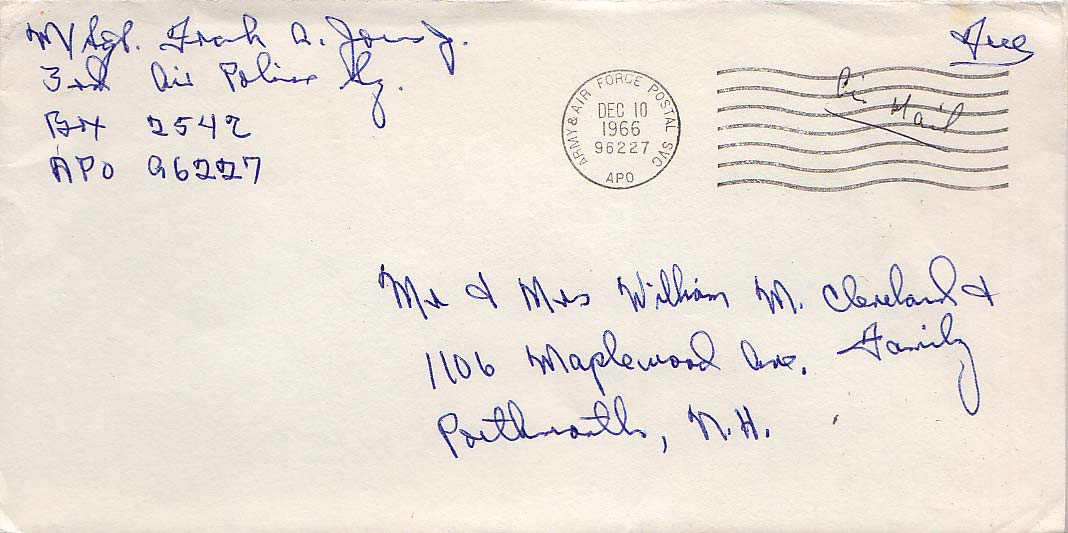 M/Sgt. Frank A. Jones Jr.
3rd Air Police Sq.
Box 2542
APO 96227
Free
Air Mail
ARMY & AIR FORCE POSTAL SVC
DEC 10
1966
96227
APO
Mr & Mrs William M. Cleveland &
Family
1106 Maplewood Ave.
Portsmouth, N.H.